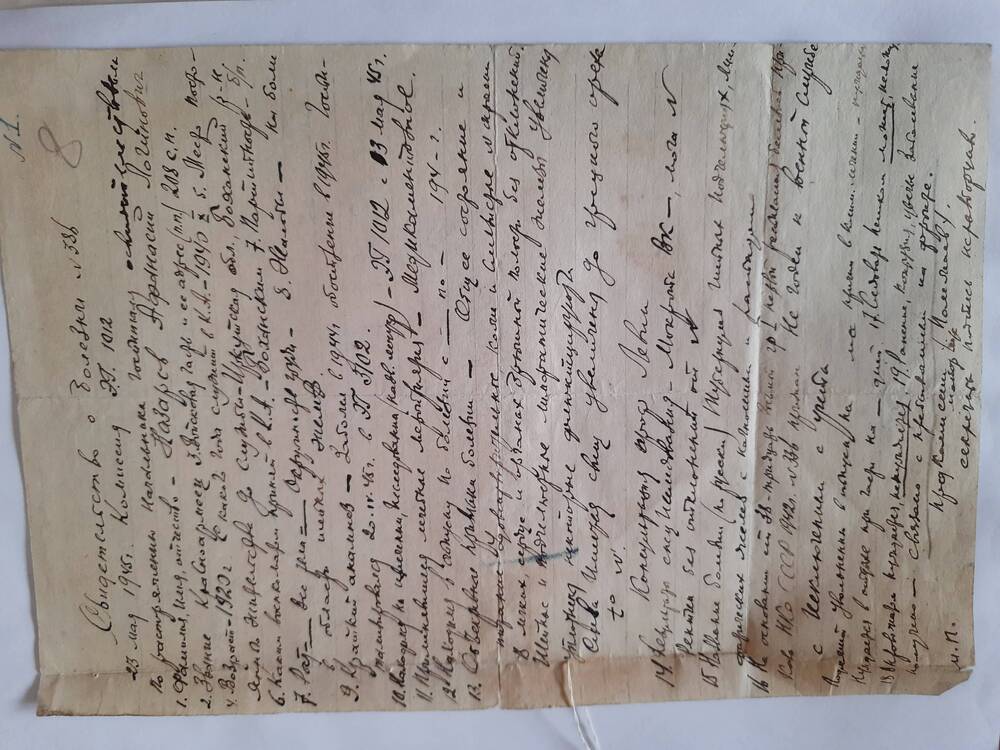 N 1.
8
Свидетельство о болезни N 386
23 мая 1945г. Комиссия ЭГ. 1012
По распоряжению Начальника Госпиталя освидетельствовала
1. Фамилия, Имя, отчество – Назаров Афанасий Логинович
2. Звание Красноармеец 3. Войсковая часть и ее адрес (п.п.) 208 с.п.
4. Возраст – 1920г. С какого года служит в К.А. – 1940 X 5. Место посто-
янного жительства до службы – Иркутская обл., Боханский р-н.
6. Каким военкоматом принят в К.А. – Боханским 7. Партийность – б/п.
7. Рост — Вес тела — Окружность груди – 8. Жалобы – на боли
в области шейных желез.
9. Краткий анамнез – Заболел в 1944г обострение в 1945г. Госпи-
тализировался 20.IV.45г. в ЭГ 3102.
10. Находился на излечении, исследовании – ЭГ 1012 с 13 мая 45г.
11. Применявшиеся лечебные мероприятия – Медикаментозное.
12 Находился в отпуску по болезни с — по — 194 - г.
13. Объективные признаки болезни – Общее состояние и
питание Удовлетворительное, кожа и слизистые N окраски
В легких, сердце и органах Брюшной полости без отклонений.
Шейные и подчелюстные лимфатические железы Увеличены
уплотнены некоторые флюктуируют
Слева Имеется свищ увеличены до грецкого ореха
t° N.
Консультация проф Левин
14. Результаты спец исследования – Мокрота ВК –, моча N
Рентген без отклонений от N
15 Название болезни (по русски) Туберкулез шейных подчелюстных, лим-
фатических желез с наличием и распадом
16 На основании ст 38-тридцать восьмой гр I первой расписания болезней при-
каза НКО СССР 1942г. N 336 признан Не годен к военной службе
с Исключением с учета
Подлежит увольнению в отпуск на
Нуждается в отдыхе при части на — дней. 17. Следовать пешком может, не может,
18 В провожатом нуждается, не нуждается. 19. Ранение, Контузия, увечье Заболевание
получено – связано с пребыванием на фронте.
Пред Комиссии
майор
м.п. секретарь подпись неразборчиво.